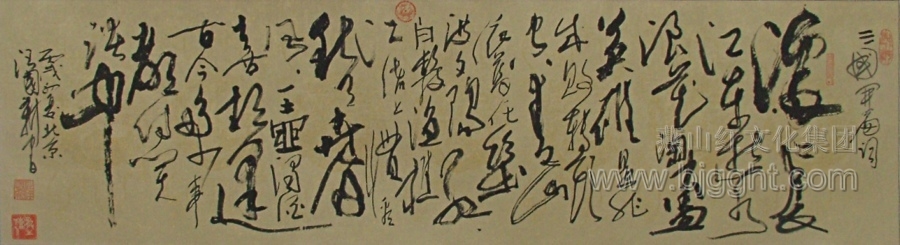 三國开篇词
滚滚长
江东逝水
浪花淘尽
英雄是非
成败转头
空青山
依旧在几
度夕陽红
白髮渔樵
江渚上惯看
秋月春
风一壶浊酒
喜相逢
古今多少事
都付笑
谈中
丙戌之夏北京
燕山红文化集团
www.bjgght.com